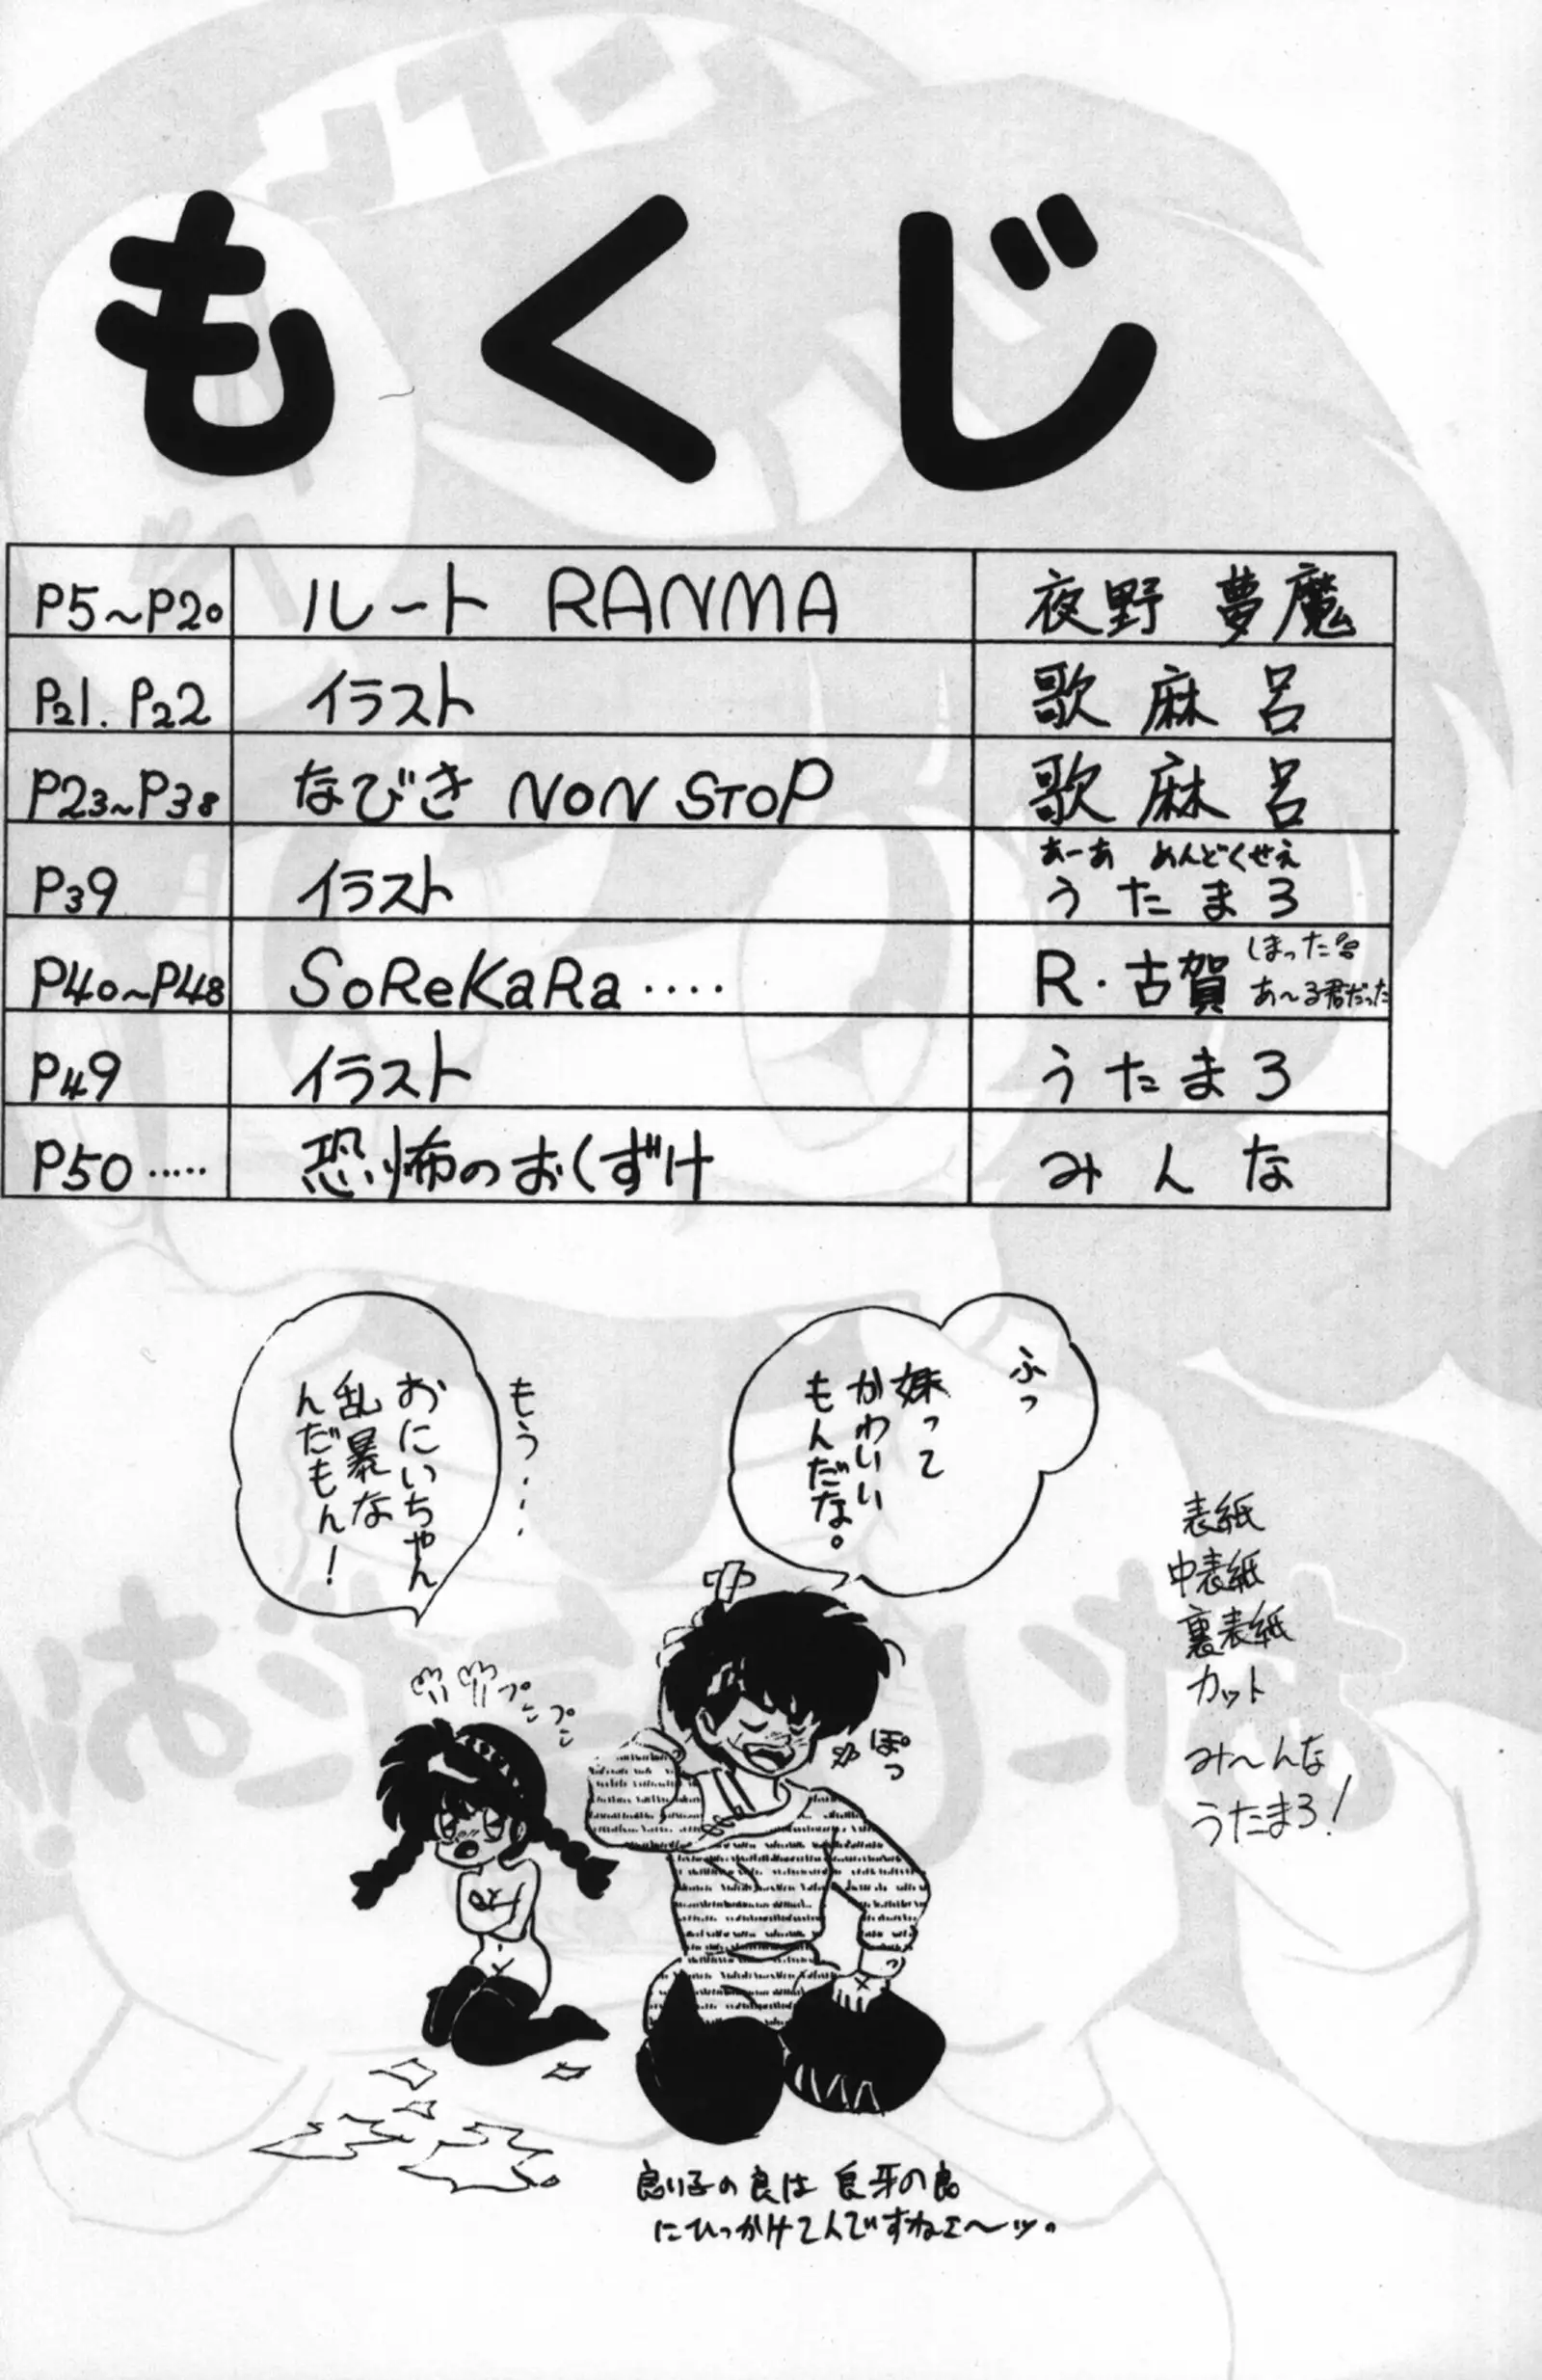 もくじ
P5〜P20 ルート RANMA 夜野 夢魔
P21. P22 イラスト 歌麻呂
P23〜P38 なびき NON STOP 歌麻呂
あーあ めんどくせえ
P39 イラスト うたまろ
P40〜P48 SoReKaRa‥‥ R・古賀 しまった
あ〜る君だった
P49 イラスト うたまろ
P50‥‥‥ 恐怖のおくずけ みんな
ふっ
妹って
かわいい
もんだな。
もう・・・
おにいちゃん
乱暴な
んだもん!
プンプン
ぽっ
表紙
中表紙
裏表紙
カット
み〜んな
うたまろ!
良い子の良は 良牙の良
にひっかけてんですねェ〜ッ。